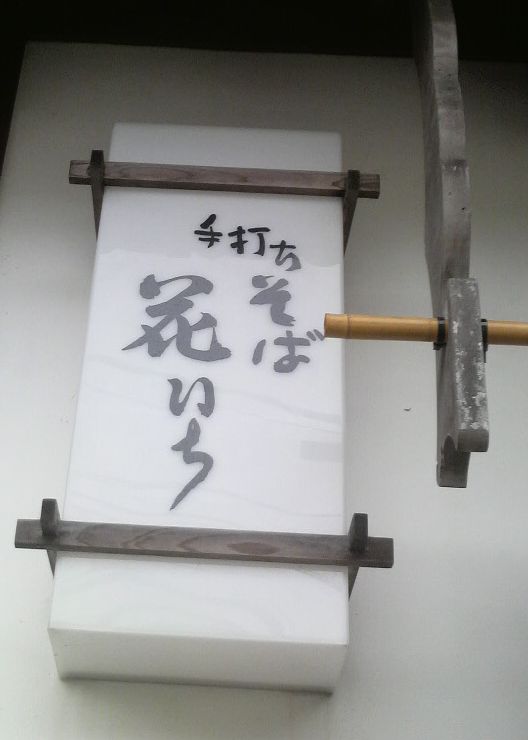 手打ち
そば
花いち